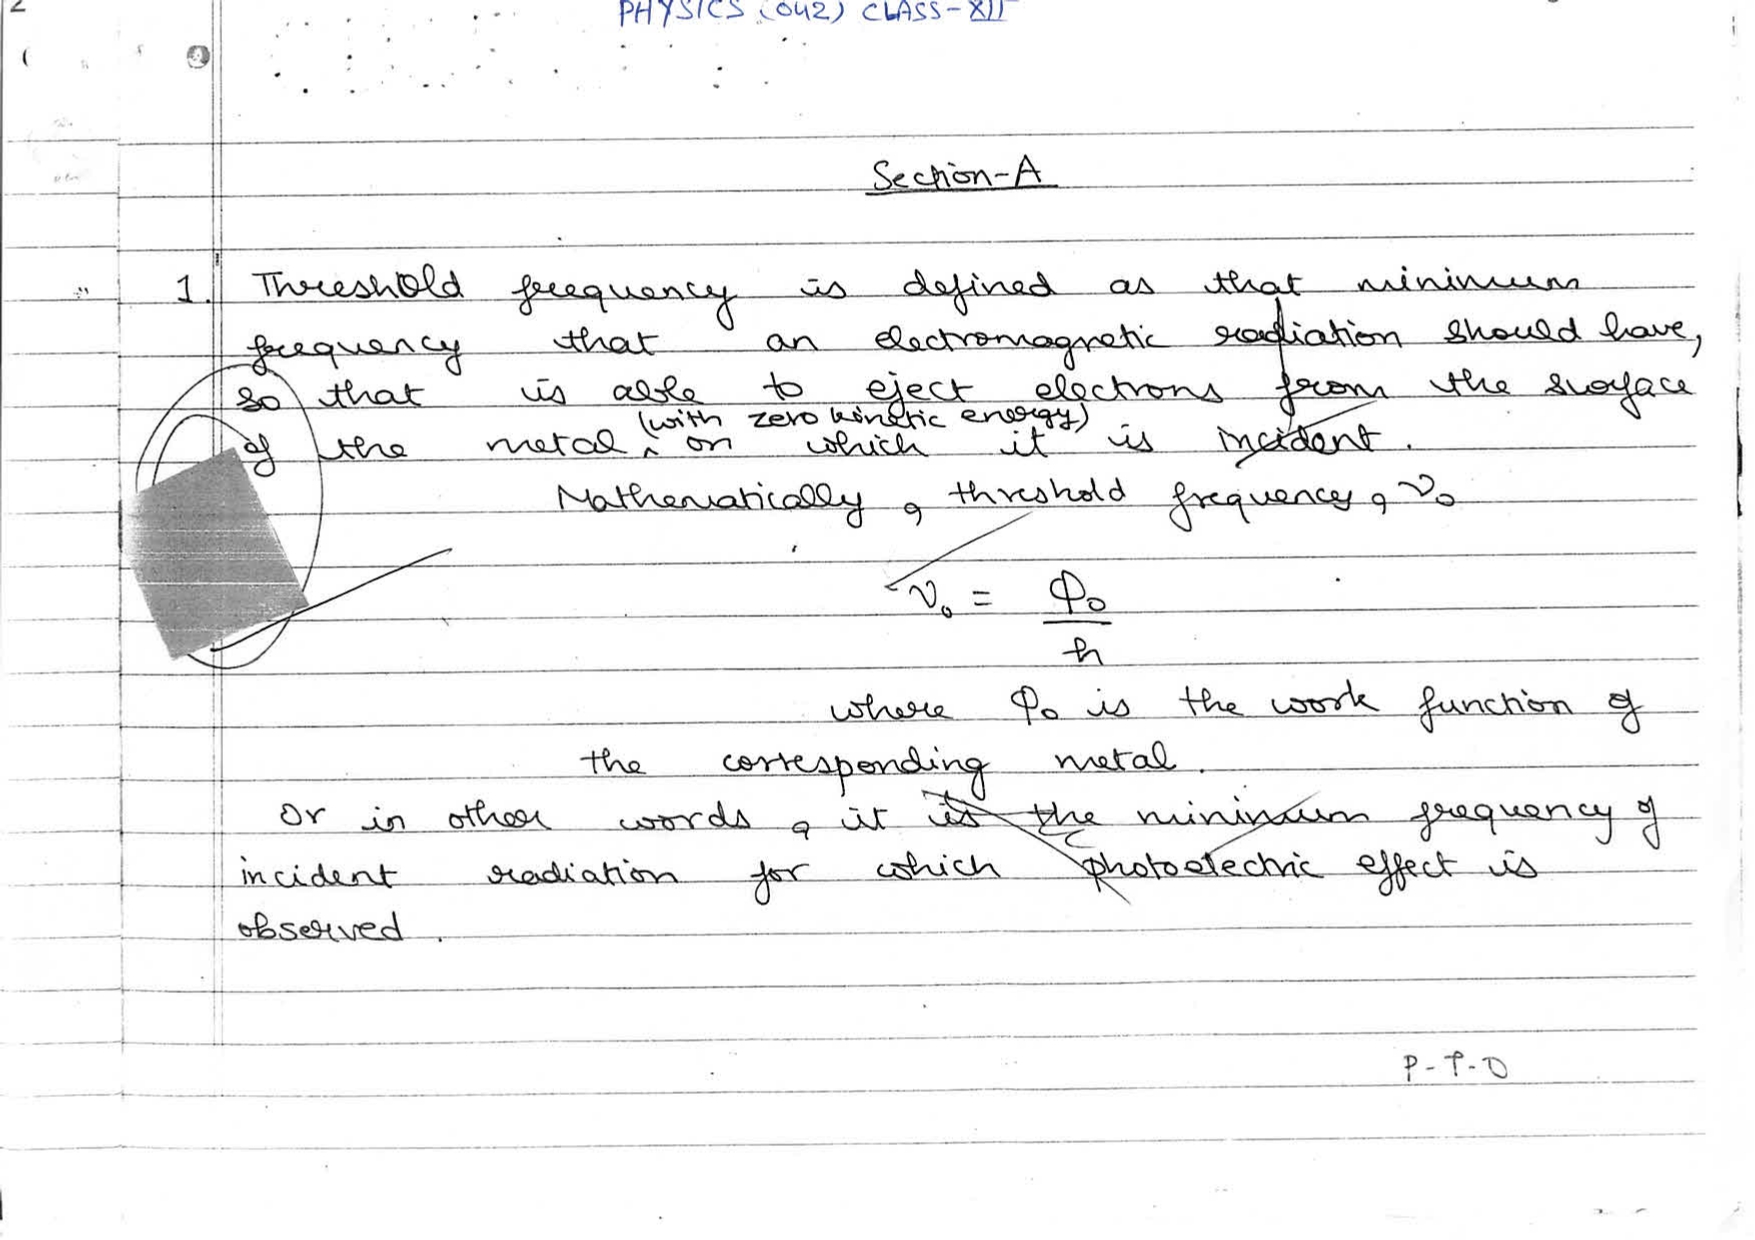 2
PHYSICS (042) CLASS-XII
Section-A
1. Threshold frequency is defined as that minimum
frequency that an electromagnetic radiation should have,
so that is able to eject electrons from the surface
(with zero kinetic energy)
of the metal ^ on which it is incident.
Mathematically, threshold frequency, ν₀
ν₀ = Φ₀
h
where Φ₀ is the work function of
the corresponding metal.
Or in other words, it is the minimum frequency of
incident radiation for which photoelectric effect is
observed.
P-T-O